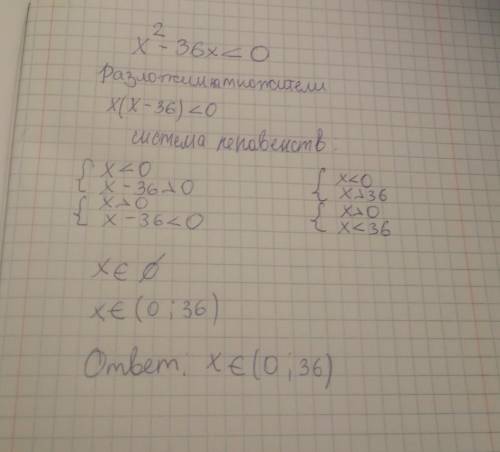 x² - 36x < 0
Разложим на множители
x(x - 36) < 0
система неравенств.
{ x < 0
x - 36 > 0
{ x > 0
x - 36 < 0
{ x < 0
x > 36
{ x > 0
x < 36
x ∈ ∅
x ∈ (0 ; 36)
Ответ: x ∈ (0 ; 36)